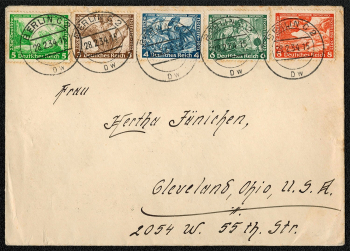 BERLIN
28.2.34
5 Deutsches Reich 5
Deutsches Reich
4 Deutsches Reich 4
6 Deutsches Reich 6
Deutsches Reich 8
Frau
Hertha Jänichen,
Cleveland, Ohio, U.S.A.
2054 W. 55 th. Str.